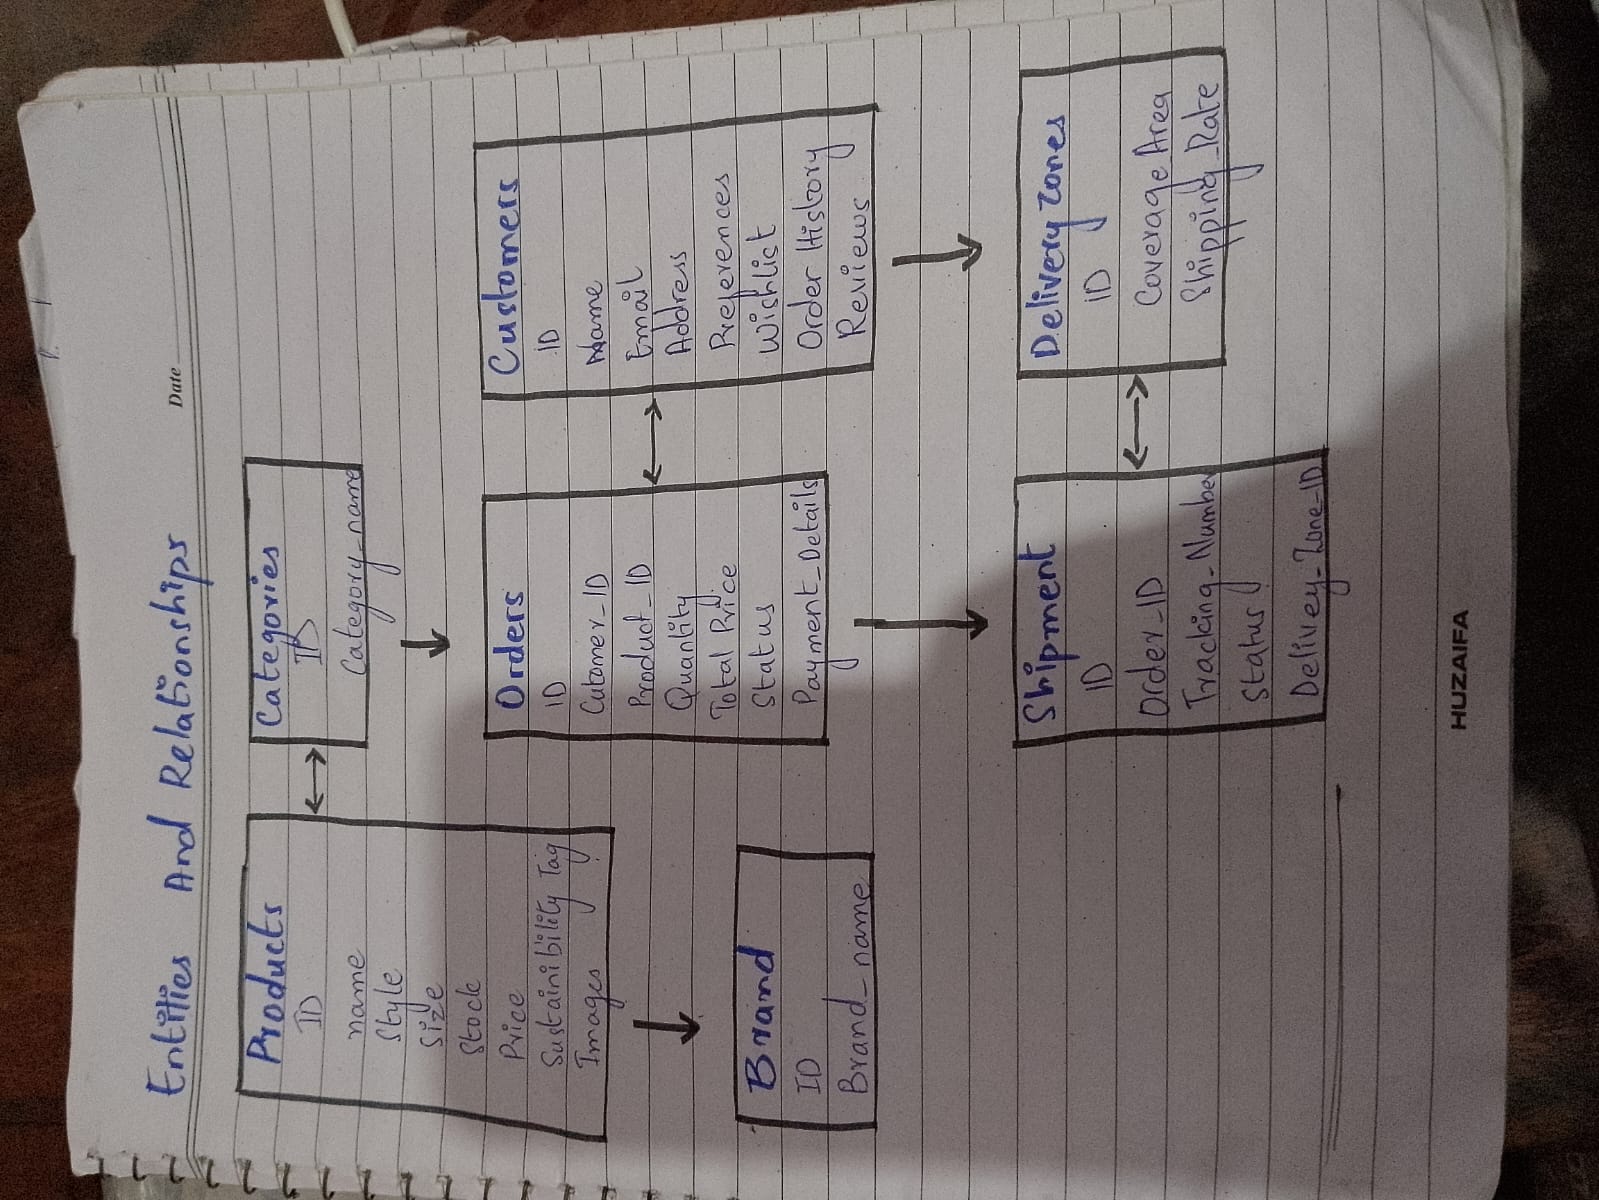 Date
Entities And Relationships
Products
ID
name
Style
Size
Stock
Price
Sustainibility Tag
Images
Categories
ID
Category_name
Brand
ID
Brand_name
Orders
ID
Cutomer_ID
Product_ID
Quantity
Total Price
Status
Payment_Details
Customers
ID
Name
Email
Address
Preferences
Wishlist
Order History
Reviews
Shipment
ID
Order_ID
Tracking_Number
Status
Delivey_Zone_ID
Delivery Zones
ID
Coverage Area
Shipping_Rate
HUZAIFA